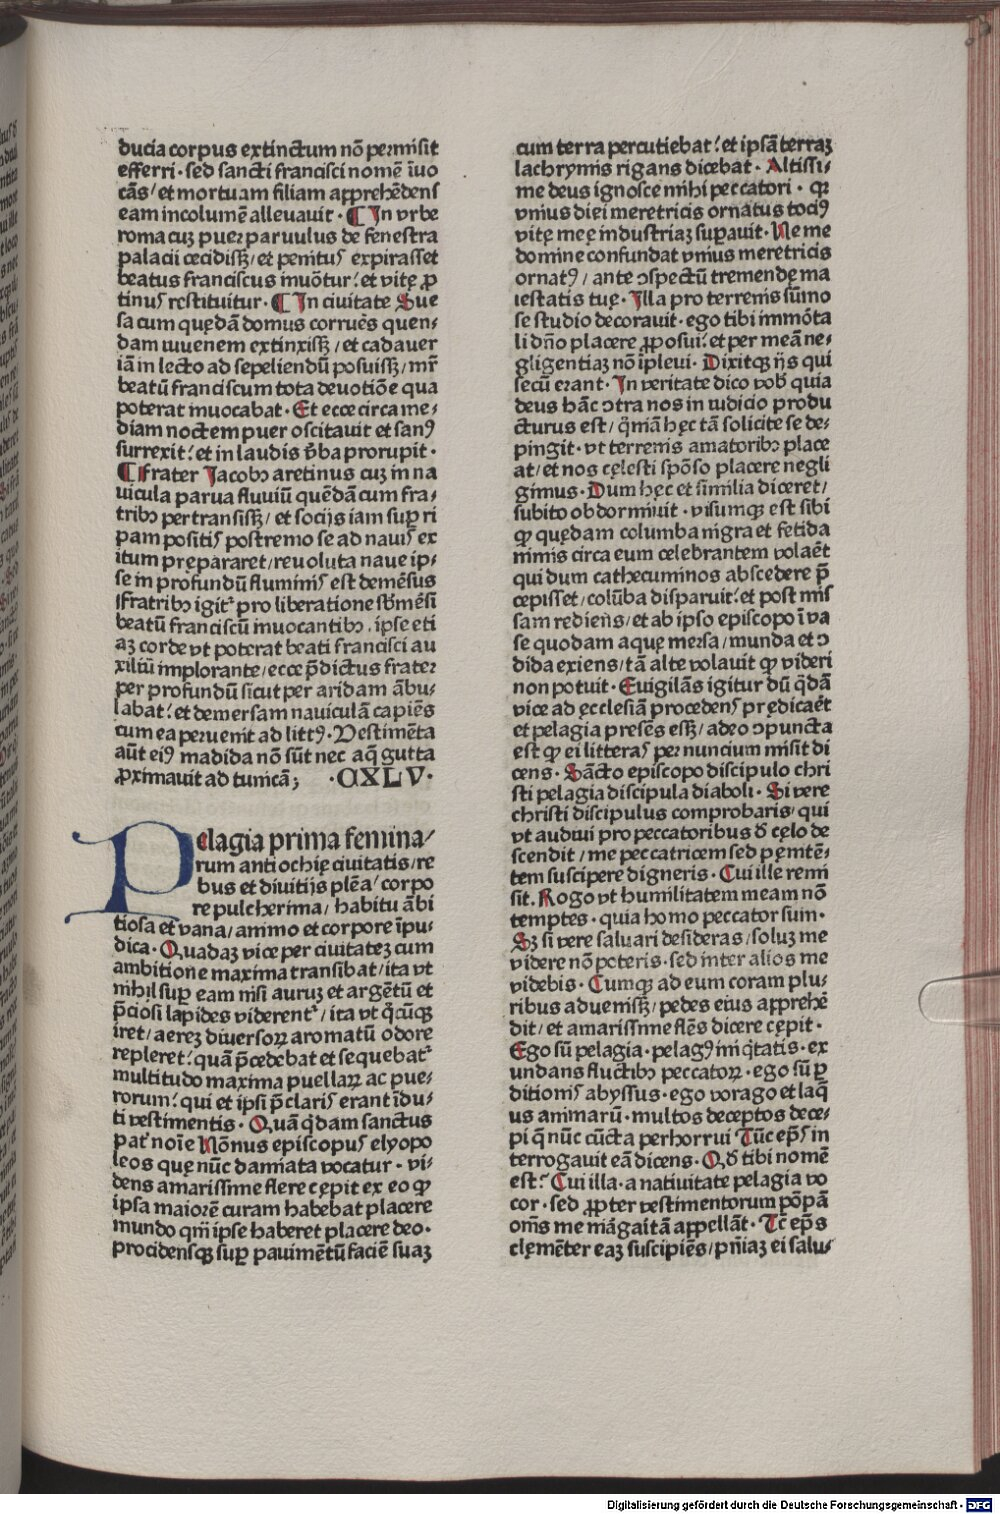 ducia corpus extinctum nō permisit
efferri · sed sancti francisci nomē ĩuo
cās / et mortuam filiam apprehēdens
eam incolumē alleuauit · ¶ In vrbe
roma cuʒ puer paruulus de fenestra
palacii cecidissʒ / et penitus expirasset
beatus franciscus inuōtur : et vitę ꝓ
tinus restituitur · ¶ In ciuitate Sue
sa cum quędā domus corruēs quen⸗
dam iuuenem extinxissʒ / et cadauer
iā in lecto ad sepeliendū posuissʒ / mr̄
beatū franciscum tota deuotiōe qua
poterat inuocabat · Et ecce circa me⸗
diam noctem puer oscitauit et sanꝰ
surrexit : et in laudis v̄ba prorupit ·
¶ Frater Jacobꝰ aretinus cuʒ in na
uicula parua fluuiū quēdā cum fra⸗
tribꝰ pertransissʒ / et socijs iam suꝑ ri
pam positis postremo se ad nauis ex
itum prępararet / reuoluta naue ip⸗
se in profundū fluminis est demēsus
Fratribꝰ igit᷑ pro liberatione sb̄mēsi
beatū franciscū inuocantibꝰ · ipse eti
aʒ corde vt poterat beati francisci au
xiliū implorante / ecce p̄dictus frater
per profundū sicut per aridam ābu⸗
labat : et demersam nauiculā capiēs
cum ea peruenit ad littꝰ · Vestimēta
aūt eiꝰ madida nō sūt nec aq̄ gutta
ꝓximauit ad tunicā ; · CXLV ·
Pelagia prima femina⸗
rum antiochię ciuitatis / re
bus et diuitijs plēa / corpo
re pulcherima / habitu ābi
tiosa et vana / animo et corpore ĩpu⸗
dica · Quadaʒ vice per ciuitateʒ cum
ambitione maxima transibat / ita vt
nihil suꝑ eam nisi auruʒ et argētū et
p̄ciosi lapides viderent᷑ / ita vt q̄cūqʒ
iret / aereʒ diuersoꝝ aromatū odore
repleret : quā p̄cedebat et sequebat᷑
multitudo maxima puellaꝝ ac pue⸗
rorum : qui et ipsi p̄claris erant ĩdu⸗
ti vestimentis · Quā q̄dam sanctus
pat᷑ noīe Nōnus episcopus elyopo
leos quę nūc damiata vocatur · vi⸗
dens amarissime flere cępit ex eo ꝙ
ipsa maiorē curam habebat placere
mundo qm̄ ipse haberet placere deo ·
procidensqʒ suꝑ pauimētū faciē suaʒ
cum terra percutiebat : et ipsā terraʒ
lachrymis rigans dicebat · Altissi⸗
me deus ignosce mihi peccatori · ꝙ
vnius diei meretricis ornatus tociꝰ
vitę meę industriaʒ suꝑauit · Ne me
domine confundat vnius meretricis
ornatꝰ / ante ↄspectū tremendę ma
iestatis tuę · Illa pro terrenis sūmo
se studio decorauit · ego tibi immōta
li dn̄o placere ꝓposui : et per meā ne⸗
gligentiaʒ nō ĩpleui · Dixitqʒ ijs qui
secū erant · In veritate dico vob᷑ quia
deus hāc ↄtra nos in iudicio produ
cturus est / qm̄iā hęc tā solicite se de⸗
pingit · vt terrenis amatoribꝰ place
at / et nos cęlesti spōso placere negli
gimus · Dum hęc et similia diceret /
subito obdormiuit · visumqʒ est sibi
ꝙ quędam columba nigra et fetida
nimis circa eum celebrantem volaēt
qui dum cathecuminos abscedere p̄
cępisset / colūba disparuit : et post mis
sam rediens / et ab ipso episcopo ĩ va
se quodam aquę mersa / munda et ↄ
dida exiens / tā alte volauit ꝙ videri
non potuit · Euigilās igitur dū q̄dā
vice ad ęcclesiā procedens prędicaēt
et pelagia presēs essʒ / adeo ↄpuncta
est ꝙ ei litteras per nuncium misit di
cens · Sācto episcopo discipulo chri
sti pelagia discipula diaboli · Si vere
christi discipulus comprobaris / qui
vt audiui pro peccatoribus d̄ cęlo de
scendit / me peccatricem sed pęnitē⸗
tem suscipere digneris · Cui ille remi
sit. Rogo vt humilitatem meam nō
temptes · quia homo peccator sum ·
Sʒ si vere saluari desideras / soluʒ me
videre nō poteris · sed inter alios me
videbis · Cumqʒ ad eum coram plu⸗
ribus aduenissʒ / pedes eius apprehē
dit / et amarissime flēs dicere cępit ·
Ego sū pelagia · pelagꝰ iniq̄tatis · ex
undans fluctibꝰ peccatoꝝ · ego sū ꝑ
ditionis abyssus · ego vorago et laq̄
us animarū · multos deceptos dece⸗
pi q̄ nūc cūcta perhorrui Tūc ep̄s in
terrogauit eā dicens · Qd̄ tibi nomē
est : Cui illa · a natiuitate pelagia vo
cor · sed ꝓpter vestimentorum pōpā
om̄s me māgaitā appellāt · Tc̄ ep̄s
clęmēter eaʒ suscipiēs / pn̄iaʒ ei salu⸗
Digitalisierung gefördert durch die Deutsche Forschungsgemeinschaft - DFG